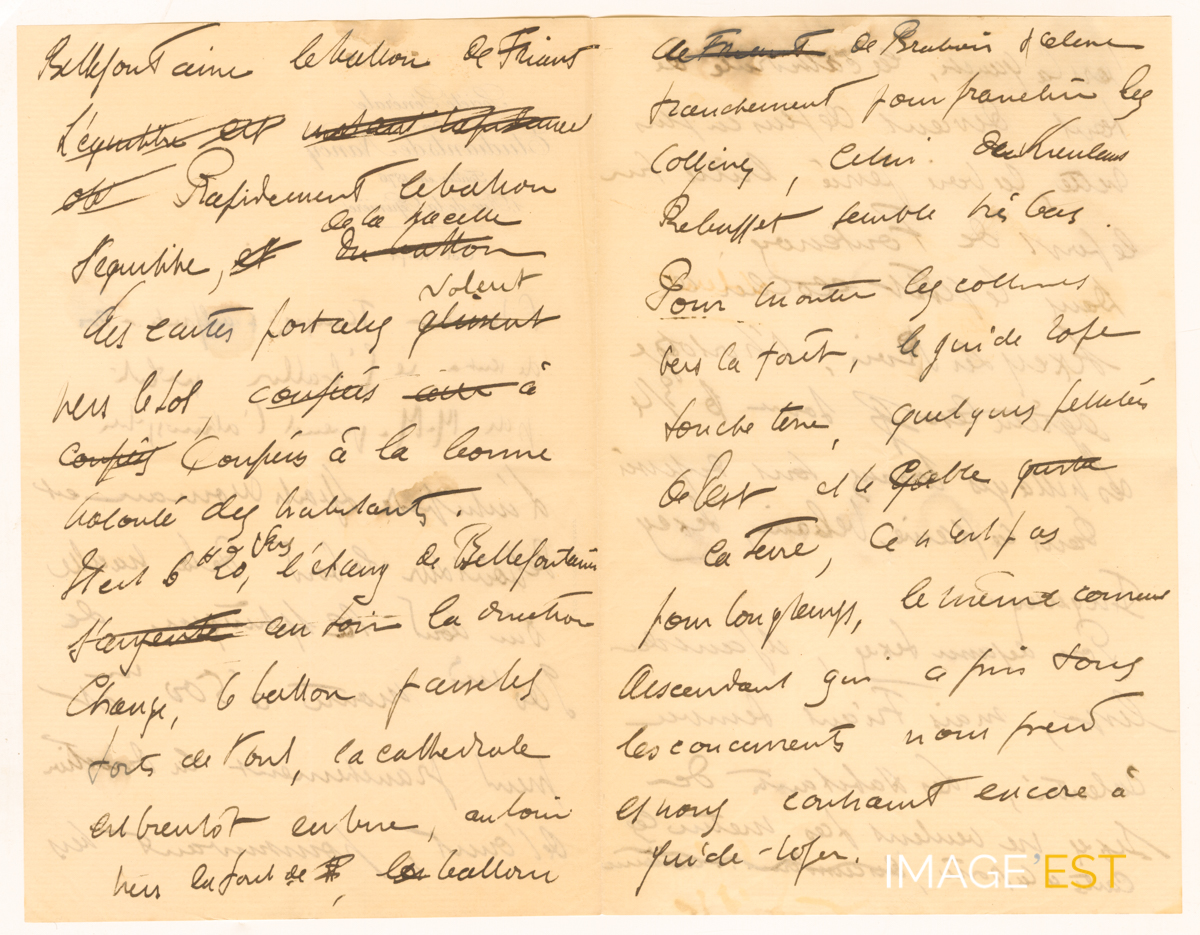 Bellefontaine le ballon de Friant
L'équilibre est
Rapidement le ballon
de la nacelle
s'équilibre, et du ballon
volent
des cartes postales glissent
vers le sol, confiés à
confiés Confiés à la bonne
volonté des habitants.
Il est 6 H 20, vers l'étang de Bellefontaine
s'argente au loin la direction
Change, le ballon passe les
forts de Toul, la cathédrale
est bientôt en vue, au loin
vers la forêt de le ballon
de Friant de Brabois s'élève
franchement pour franchir les
Collines, Celui de
Rebuffet semble très bas.
Pour monter les collines
vers la forêt, le guide rope
touche terre, quelques pelletées
de lest et le
la terre, ce n'est pas
pour longtemps, le même courant
descendant qui a pris tous
les concurrents nous prend
et nous contraint encore à
guide-roper.
IMAGE'EST